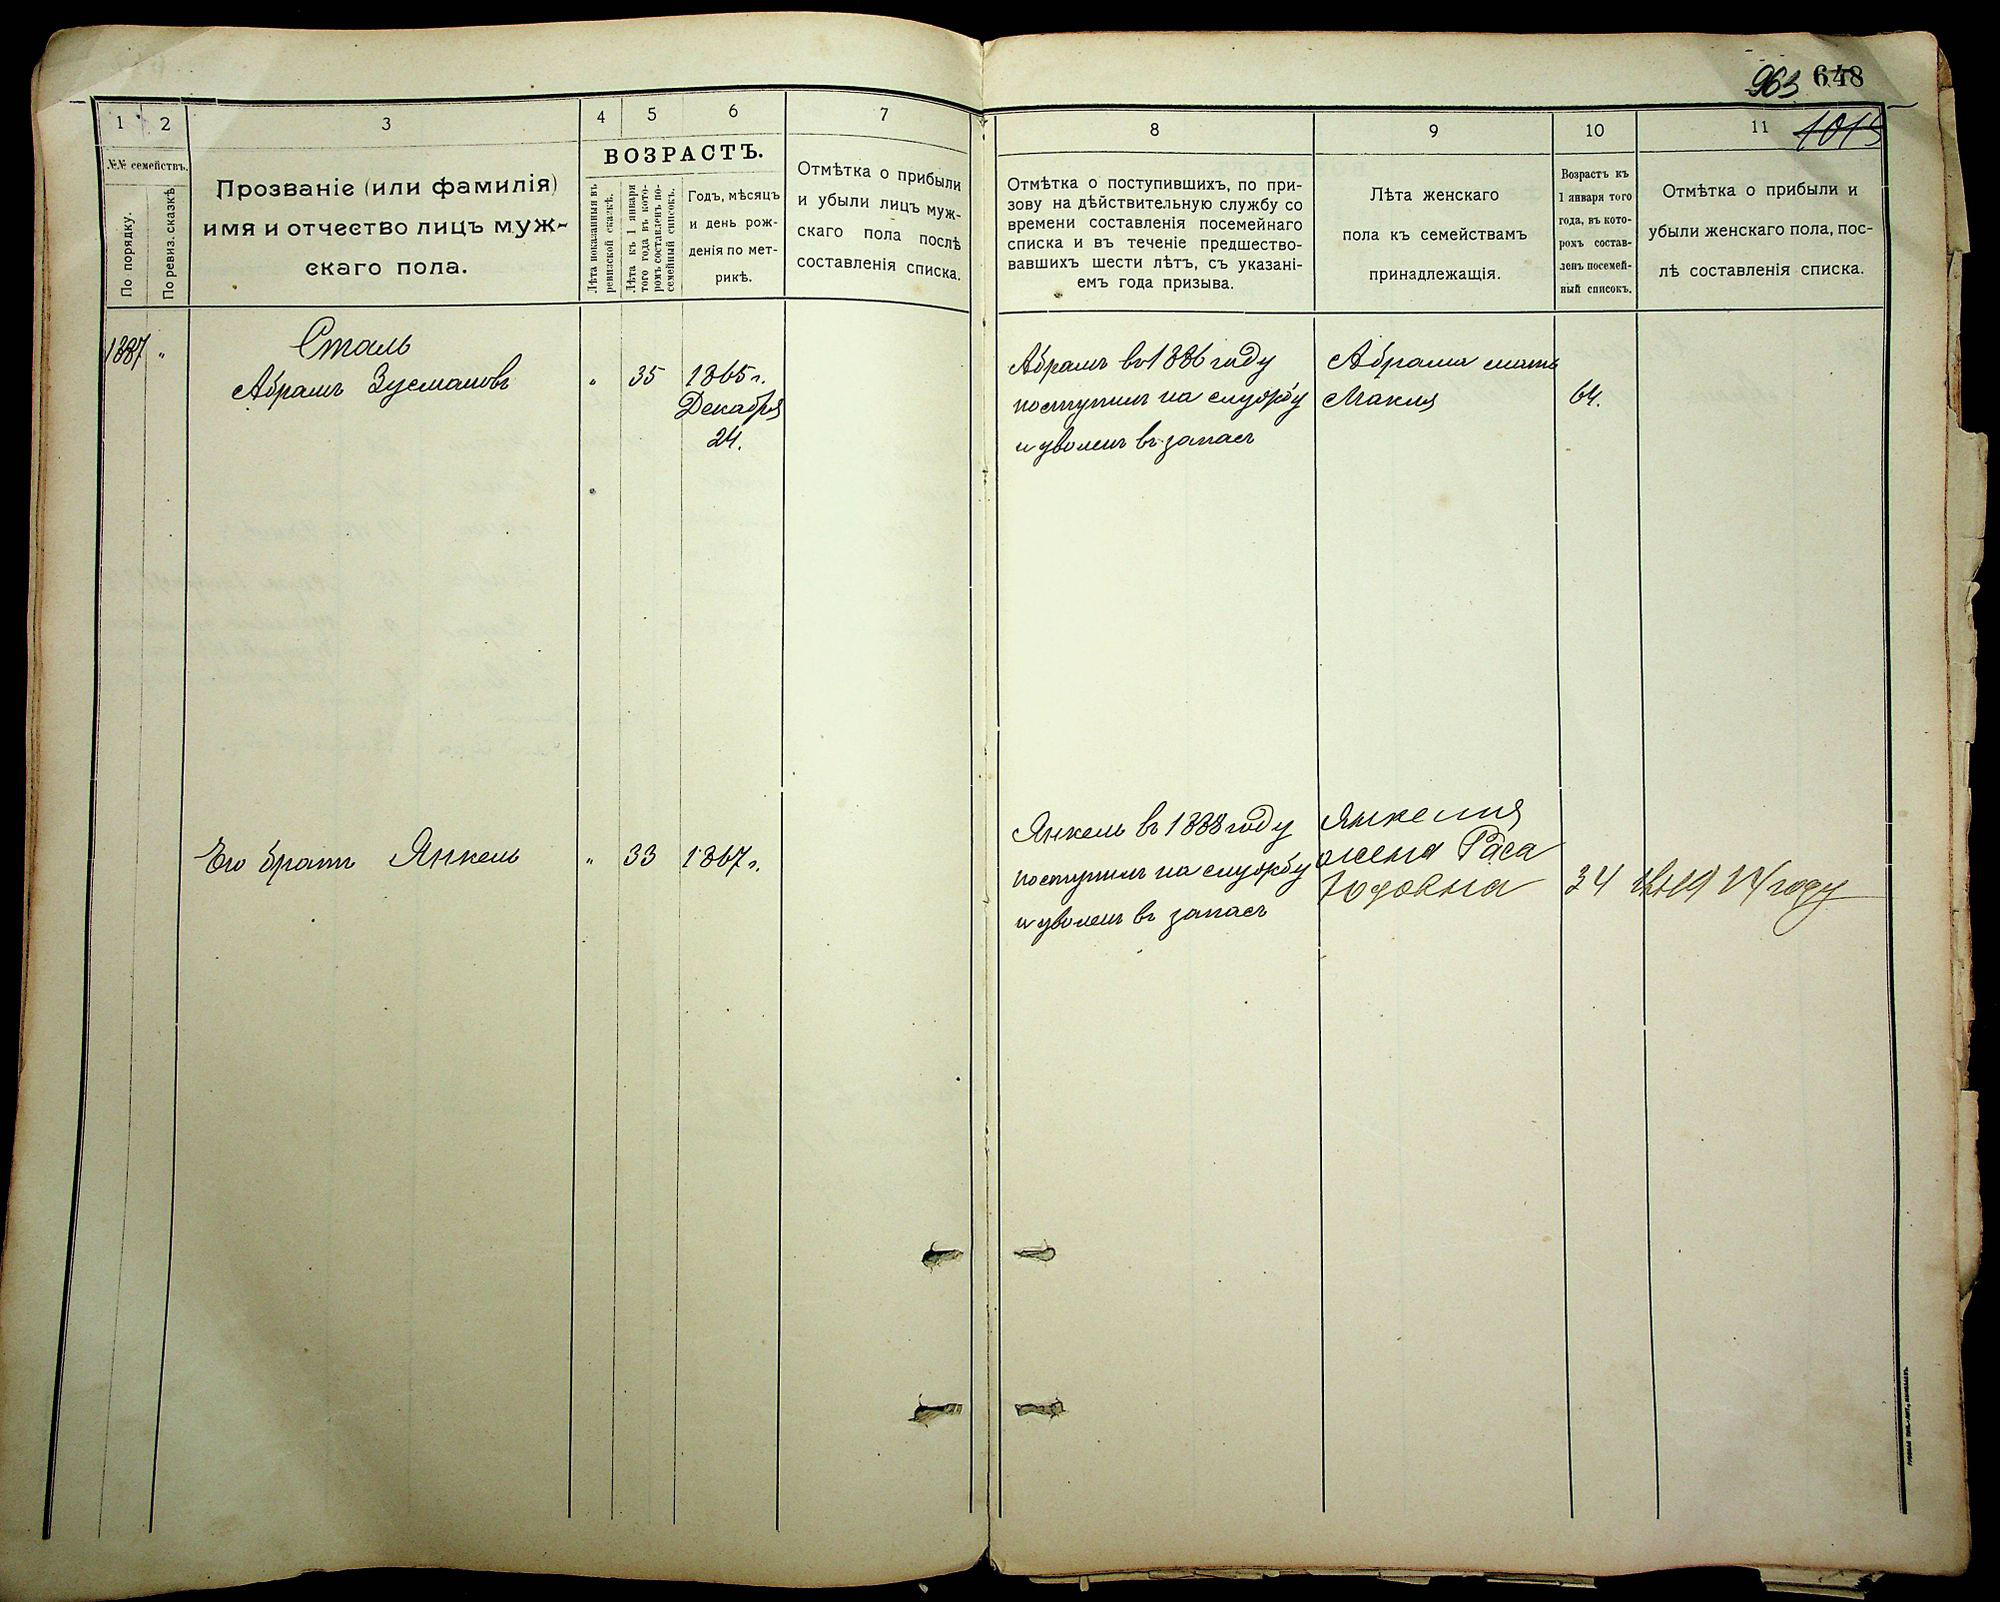 963 648
1015
1 2 3 4 5 6 7
№№ семействъ.
По порядку.
По ревиз. сказкѣ
Прозваніе (или фамилія)
имя и отчество лицъ муж-
скаго пола.
ВОЗРАСТЪ.
Лѣта показанныя въ
ревизской сказкѣ.
Лѣта къ 1 января
того года въ кото-
ромъ составленъ по-
семейный списокъ.
Годъ, мѣсяцъ
и день рож-
денія по мет-
рикѣ.
Отмѣтка о прибыли
и убыли лицъ муж-
скаго пола послѣ
составленія списка.
8 9 10 11
Отмѣтка о поступившихъ, по при-
зову на дѣйствительную службу со
времени составленія посемейнаго
списка и въ теченіе предшество-
вавшихъ шести лѣтъ, съ указані-
емъ года призыва.
Лѣта женскаго
пола къ семействамъ
принадлежащія.
Возрастъ къ
1 января того
года, въ кото-
рохъ состав-
ленъ посемей-
ный списокъ.
Отмѣтка о прибыли и
убыли женскаго пола, пос-
лѣ составленія списка.
1887 "
Сталь
Абрамъ Зусмановъ
" 35 1865 г.
Декабря
24.
Абрамъ въ 1886 году
поступилъ на службу
и уволенъ въ запасъ
Абрама мать
64.
Его братъ Янкель
" 33 1867 г.
Янкель въ 1888 году
поступилъ на службу
и уволенъ въ запасъ
Янкеля
жена Раса
Юдовна
34
1914 году